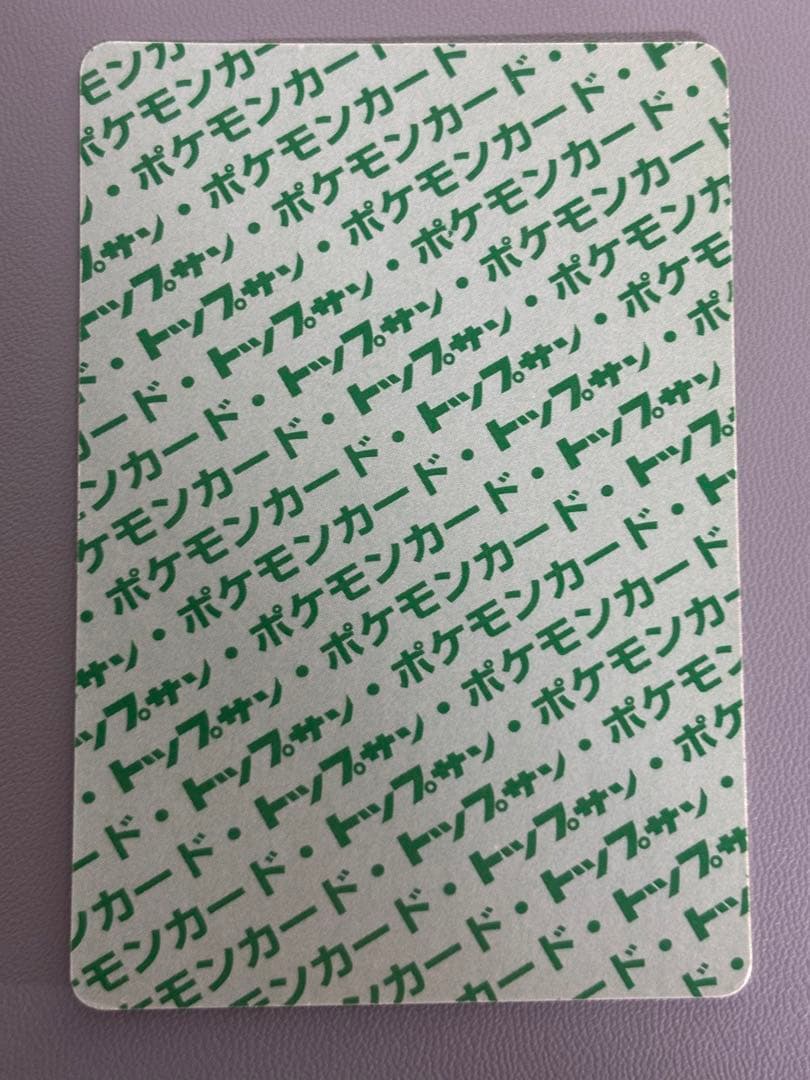 モンカ
ポケモンカー
・ポケモンカー
プサン・ポケモンカード
トップサン・ポケモンカード・
ド・トップサン・ポケモンカード・ト
ード・トップサン・ポケモンカード・
ンカード・トップサン・ポケモンカード
ケモンカード・トップサン・ポケモンカ
・ポケモンカード・トップサン・ポケモ
サン・ポケモンカード・トップサン・ポ
プサン・ポケモンカード・トップサン
・トップサン・ポケモンカード・トップ
ード・トップサン・ポケモンカード・ト
ンカード・トップサン・ポケモンカード
モンカード・トップサン・ポケモンカー
モンカード・トップサン・ポケモン
カード・トップサン・ポケ
ード・トップサン・
ード・トップサ
ド・トッ
ド・